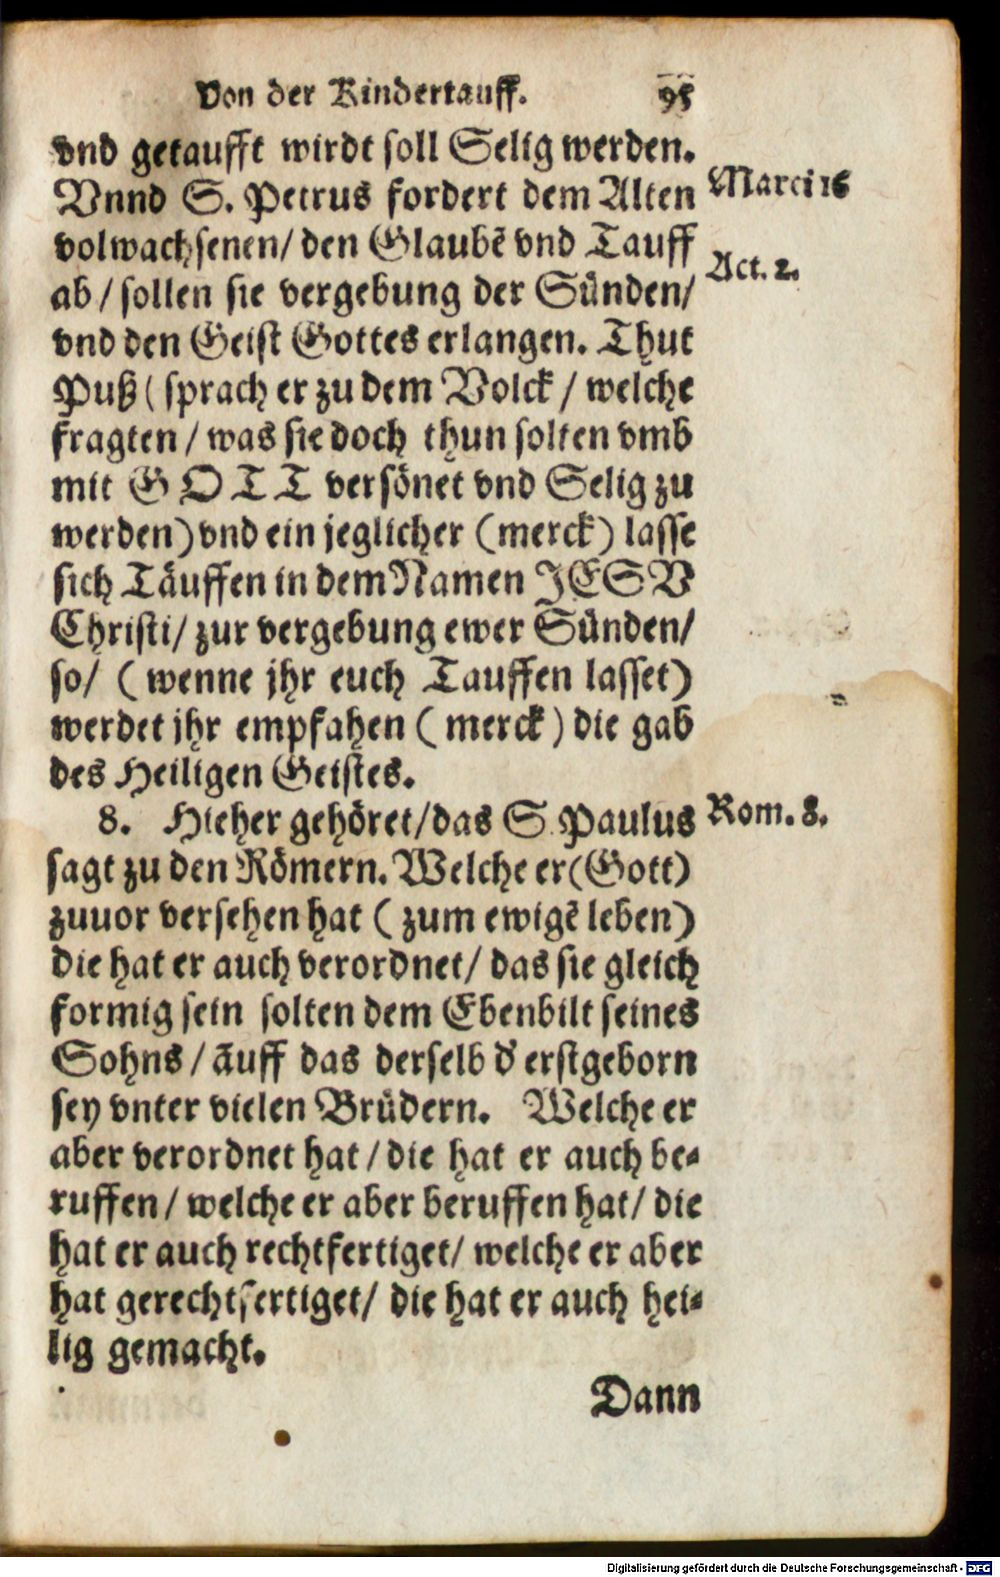 Von der Kindertauff. 95
vnd getaufft wirdt soll Selig werden.
Marci 16
Vnnd S. Petrus fordert dem Alten
volwachsenen/ den Glaubẽ vnd Tauff
Act. 2.
ab / sollen sie vergebung der Sünden/
vnd den Geist Gottes erlangen. Thut
Puß ( sprach er zu dem Volck / welche
fragten / was sie doch thun solten vmb
mit GOTT versönet vnd Selig zu
werden) vnd ein jeglicher (merck) lasse
sich Täuffen in dem Namen JESV
Christi/ zur vergebung ewer Sünden/
so/ ( wenne jhr euch Tauffen lasset)
werdet jhr empfahen ( merck ) die gab
des Heiligen Geistes.
8. Hieher gehöret/das S. Paulus
Rom. 8.
sagt zu den Römern. Welche er(Gott)
zuuor versehen hat ( zum ewigẽ leben)
die hat er auch verordnet/ das sie gleich
formig sein solten dem Ebenbilt seines
Sohns / auff das derselb d' erstgeborn
sey vnter vielen Brüdern. Welche er
aber verordnet hat / die hat er auch be⸗
ruffen/ welche er aber beruffen hat/ die
hat er auch rechtfertiget/ welche er aber
hat gerechtfertiget/ die hat er auch hei⸗
lig gemacht.
Dann
Digitalisierung gefördert durch die Deutsche Forschungsgemeinschaft - DFG